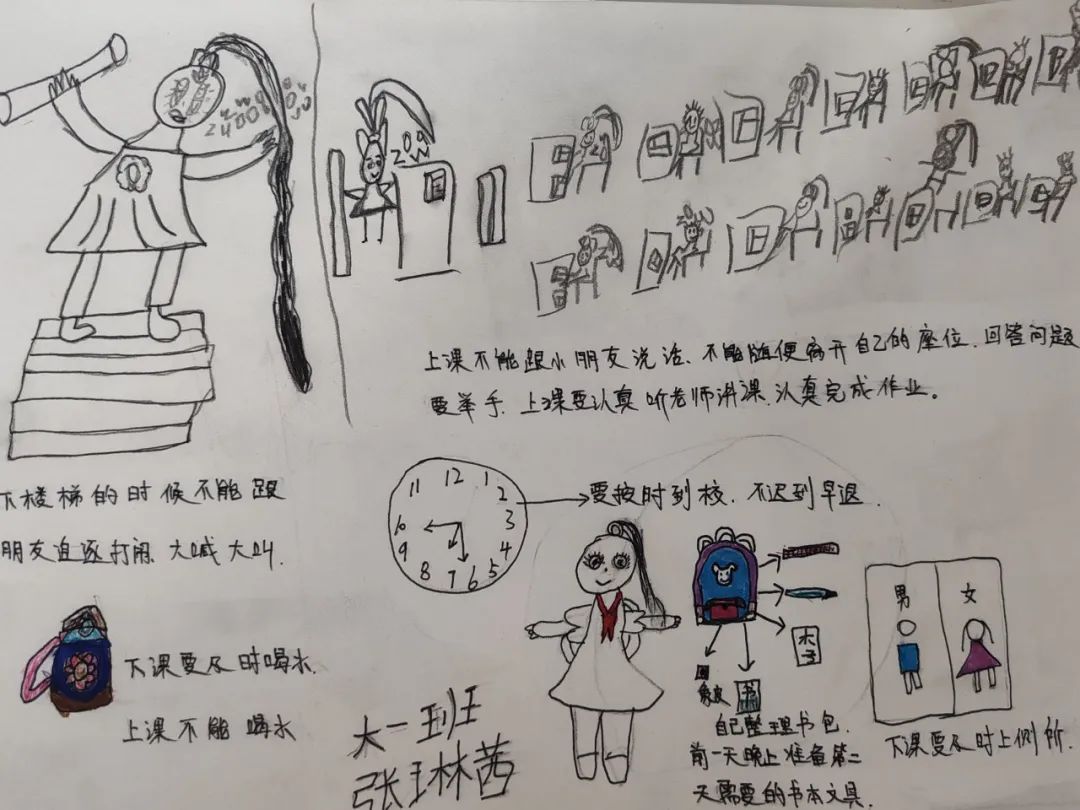 上课不能跟小朋友说话、不能随便离开自己的座位、回答问题
要举手、上课要认真听老师讲课、认真完成作业。
下楼梯的时候不能跟
朋友追逐打闹、大喊大叫.
要按时到校、不迟到早退.
11 12 1
2
3
4
5
6
7
8
9
男 女
本子
橡皮
书
下课要及时喝水
上课不能喝水
大一班
张琳茜
自己整理书包.
前一天晚上准备第二
天需要的书本文具.
下课要及时上厕所.